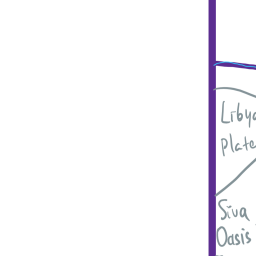 Libya
Plate
Siva
Oasis